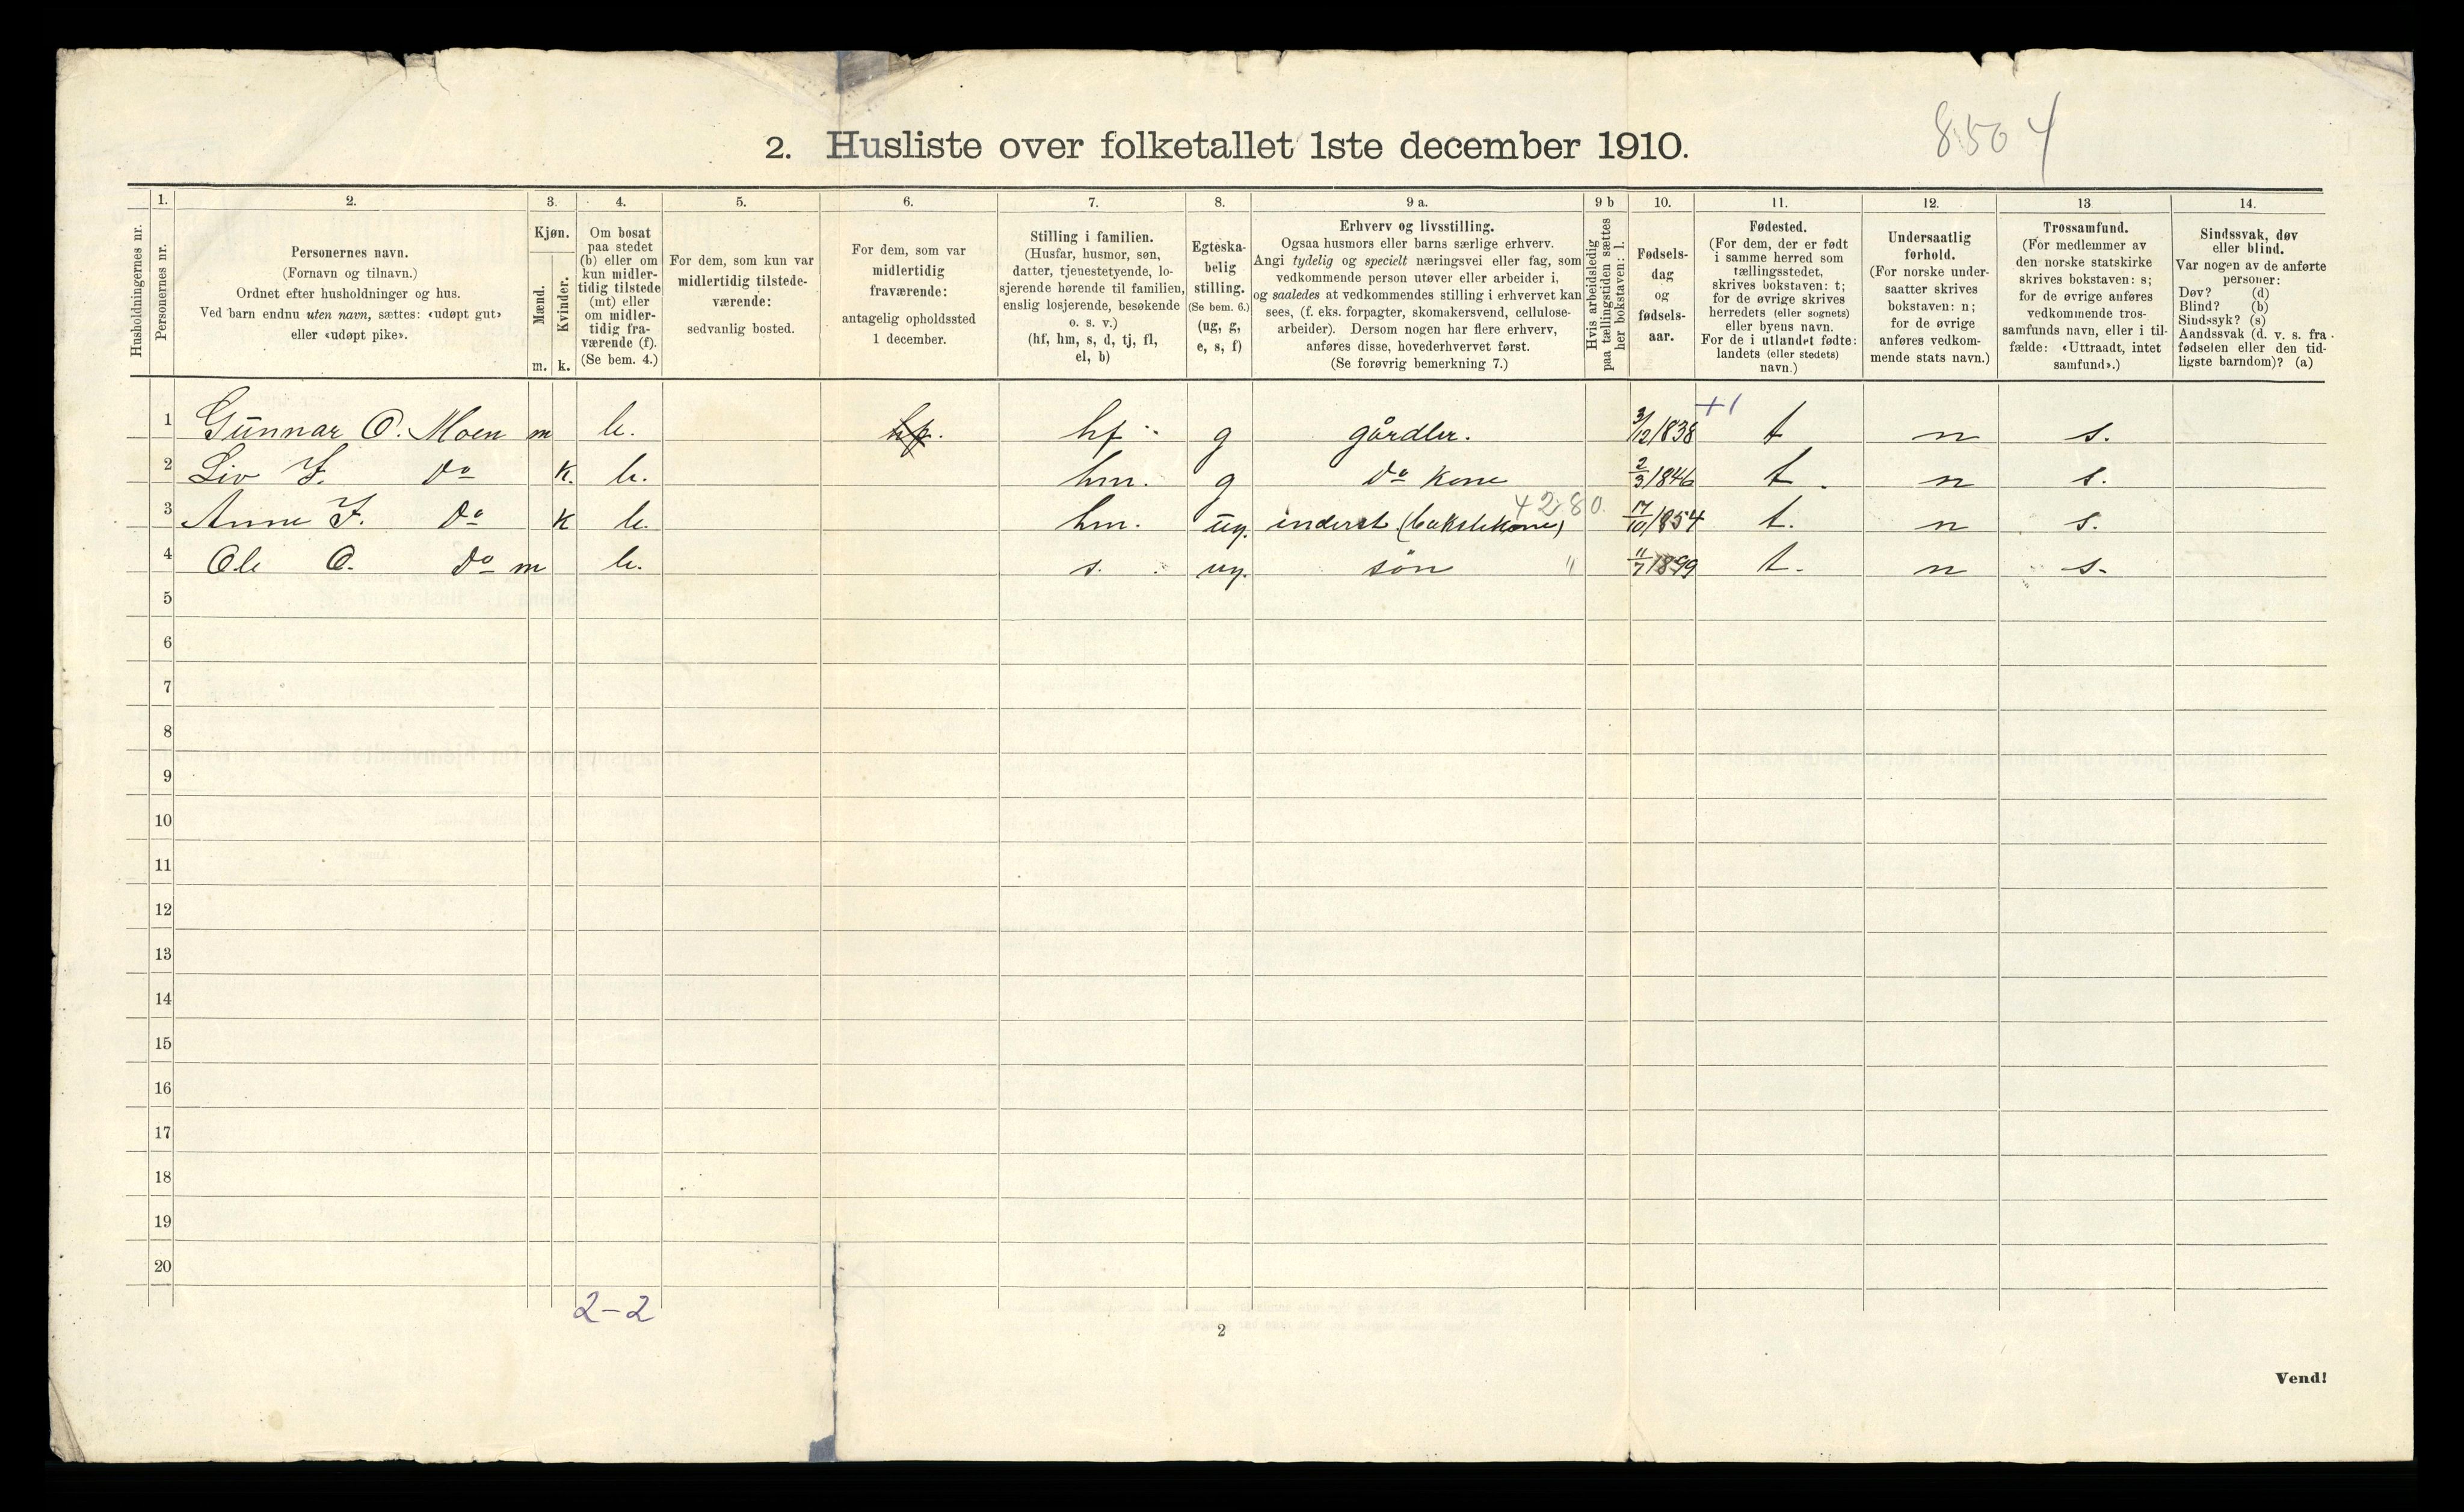 8504
2. Husliste over folketallet 1ste december 1910.
Husholdningernes nr.
1. Personernes nr.
2. Personernes navn. (Fornavn og tilnavn.) Ordnet efter husholdninger og hus. Ved barn endnu uten navn, sættes: «udøpt gut» eller «udøpt pike».
3. Kjøn. Mænd. m. Kvinder. k.
4. Om bosat paa stedet (b) eller om kun midler- tidig tilstede (mt) eller om midler- tidig fra- værende (f). (Se bem. 4.)
5. For dem, som kun var midlertidig tilstede- værende: sedvanlig bosted.
6. For dem, som var midlertidig fraværende: antagelig opholdssted 1 december.
7. Stilling i familien. (Husfar, husmor, søn, datter, tjenestetyende, lo- sjerende hørende til familien, enslig losjerende, besøkende o. s. v.) (hf, hm, s, d, tj, fl, el, b)
8. Egteska- belig stilling. (Se bem. 6.) (ug, g, e, s, f)
9 a. Erhverv og livsstilling. Ogsaa husmors eller barns særlige erhverv. Angi tydelig og specielt næringsvei eller fag, som vedkommende person utøver eller arbeider i, og saaledes at vedkommendes stilling i erhvervet kan sees, (f. eks. forpagter, skomakersvend, cellulose- arbeider). Dersom nogen har flere erhverv, anføres disse, hovederhvervet først. (Se forøvrig bemerkning 7.)
9 b Hvis arbeidsledig paa tællingstiden sættes her bokstaven: l.
10. Fødsels- dag og fødsels- aar.
11. Fødested. (For dem, der er født i samme herred som tællingsstedet, skrives bokstaven: t; for de øvrige skrives herredets (eller sognets) eller byens navn. For de i utlandet fødte: landets (eller stedets) navn.)
12. Undersaatlig forhold. (For norske under- saatter skrives bokstaven: n; for de øvrige anføres vedkom- mende stats navn.)
13 Trossamfund. (For medlemmer av den norske statskirke skrives bokstaven: s; for de øvrige anføres vedkommende tros- samfunds navn, eller i til- fælde: «Uttraadt, intet samfund».)
14. Sindssvak, døv eller blind. Var nogen av de anførte personer: Døv? (d) Blind? (b) Sindssyk? (s) Aandssvak (d. v. s. fra fødselen eller den tid- ligste barndom)? (a)
+1
1 Gunnar O. Moen m b. hf. hf g gårdbr. 3/12 1838 t n s.
2 Liv I. do k. b. hm. g do kone 2/3 1846 t. n s.
4280.
3 Anne I. do k b. hm. ug. inderst 17/10 1854 t. n s.
4 Ole O. do m b. s. ug. søn " 11/7 1899 t. n s.
5
6
7
8
9
10
11
12
13
14
15
16
17
18
19
20
2-2
2
Vend!